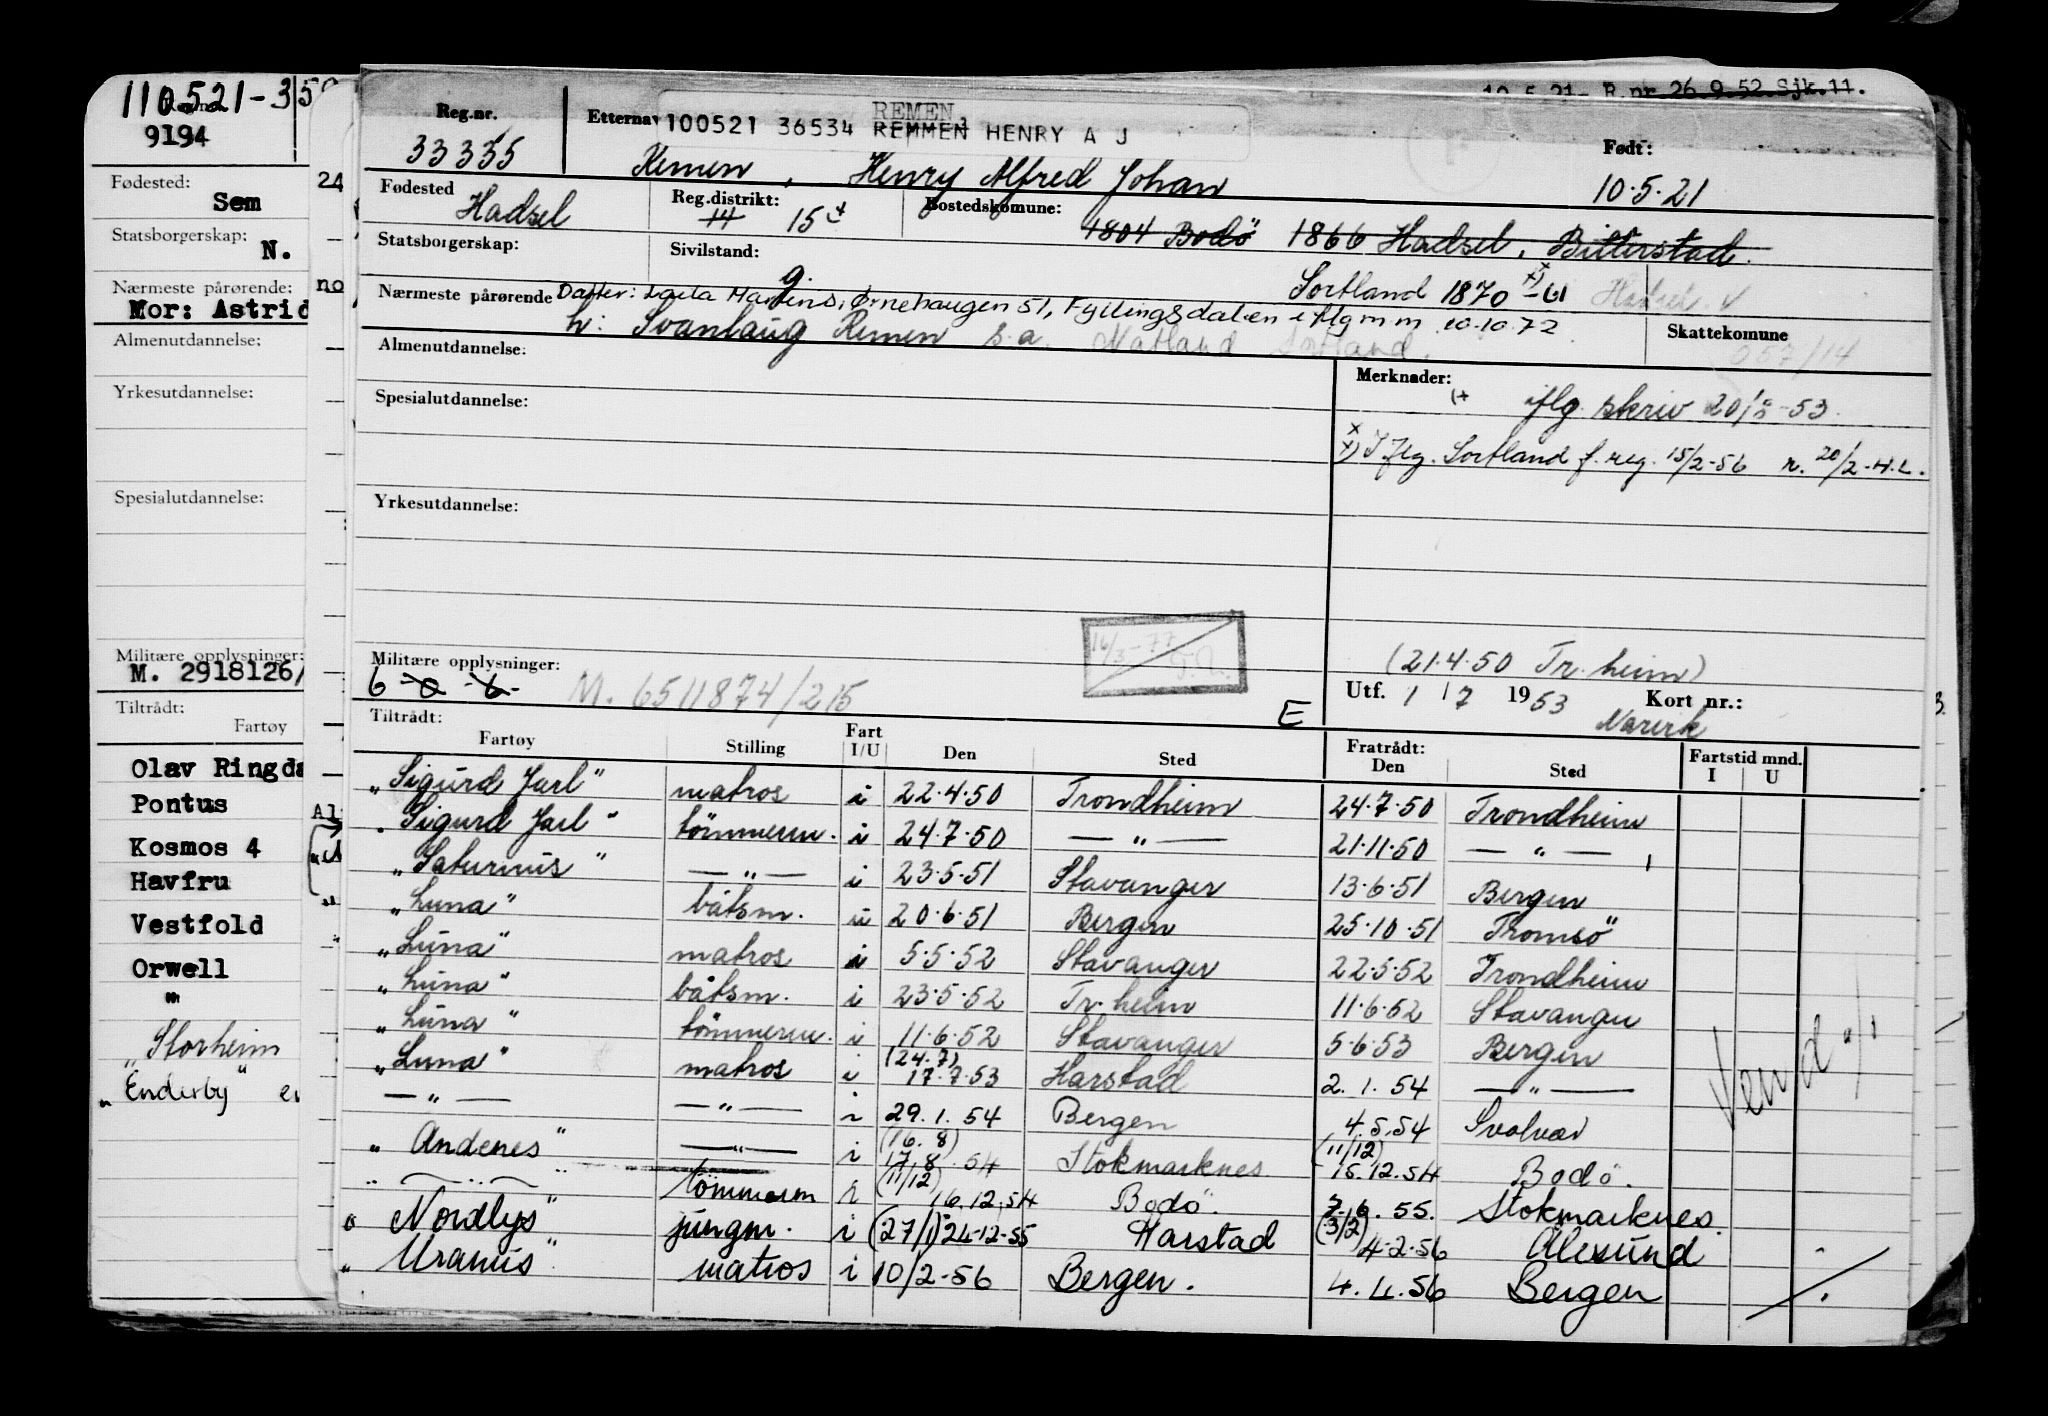 110521-3
9194
Fødested:
Sem
Statsborgerskap:
N.
Nærmeste pårørende:
Mor: Astrid
Almenutdannelse:
Yrkesutdannelse:
Spesialutdannelse:
Militære opplysninger:
M. 2918126/
Tiltrådt:
Fartøy
Olav Ringda
Pontus
Kosmos 4
Havfru
Vestfold
Orwell
"
"Storheim
"Enderby"
24
no
Al
10.5.21- R.nr 26.9.52 Sjk.11.
Reg.nr. Etternav REMEN
100521 36534 REMMEN HENRY A J
33335 Remen, Henry Alfred Johan Født: 10.5.21
Fødested Hadsel Reg.distrikt: 14 15 Bostedskomune: 1804 Bodö 1866 Hadsel, Bitterstad.
Statsborgerskap: Sivilstand: g. Sortland 1870 -61 Hadsel
Nærmeste pårørende Datter: Laila Martens, Ørnehaugen 51, Fyllingsdalen iflg m m 10.10.72
h: Svanlaug Remen s.a. Natland Sortland. Skattekomune
Almenutdannelse: Merknader: iflg. skriv 20/8-53.
Spesialutdannelse: x) I flg. Sortland f.reg. 15/2-56 r. 20/2-H.L.
Yrkesutdannelse:
16/3-77
(21.4.50 Tr.heim)
Militære opplysninger: Utf. 1/7 1953 Kort nr.:
6-0-6- M. 6511874/215 E Narvik
Tiltrådt: Fart Fratrådt: Fartstid mnd.
Fartøy Stilling I/U Den Sted Den Sted I U
"Sigurd Jarl" matros i 22.4.50 Trondheim 24.7.50 Trondheim
"Sigurd Jarl" tömmerm. i 24.7.50 — " — 21.11.50 — " —
"Saturnus" — " — i 23.5.51 Stavanger 13.6.51 Bergen
"Luna" båtsm. i 20.6.51 Bergen 25.10.51 Tromsö
"Luna" matros i 5.5.52 Stavanger 22.5.52 Trondheim
"Luna" båtsm. i 23.5.52 Tr.heim 11.6.52 Stavanger
"Luna" tömmerm. i 11.6.52 Stavanger 5.6.53 Bergen
"Luna" matros i (24.7) 17.7.53 Harstad 2.1.54 — " —
— " — — " — i 29.1.54 Bergen 4.5.54 Svolvær
"Andenes" — " — i (16.8) 17.8.54 Stokmarknes (11/12) 15.12.54 Bodö.
— " — tömmerm i (11/12) 16.12.54 Bodö. 7.6.55. Stokmarknes
"Nordlys" jungm. i (27/1) 24-12-55 Harstad (3/2) 4-2-56 Ålesund
"Uranus" matros i 10/2-56 Bergen. 4.4.56 Bergen
Vend %